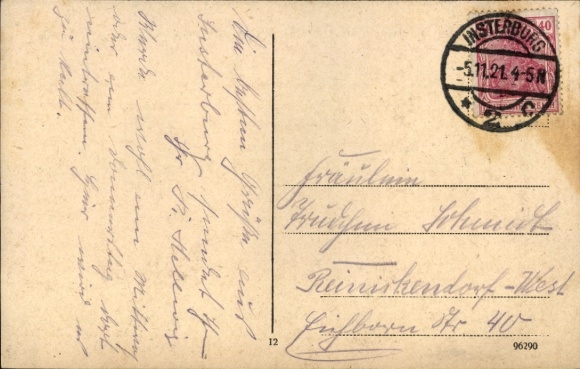 Die besten Grüße aus
Insterburg sendet
Fr. Hellwig
Werde wohl am Mittwoch
oder am Donnerstag dort
eintreffen. Hier wird es
zu kalt.
40
INSTERBURG
-5.11.21. 4-5 N
* 2 c
Fräulein
Trudchen Schmidt
Reinickendorf-West
Eichborn Str 40
12
96290